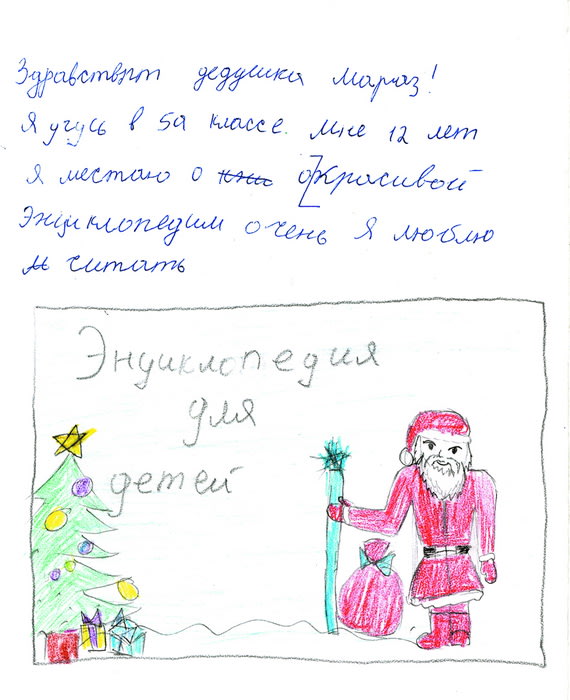 Здравствит дедушка мараз!
Я угусь в 5а классе. Мне 12 лет
Я местаю о о красивой
Энциклопедии очень Я люблю
читать
Энциклопедия
для
детей